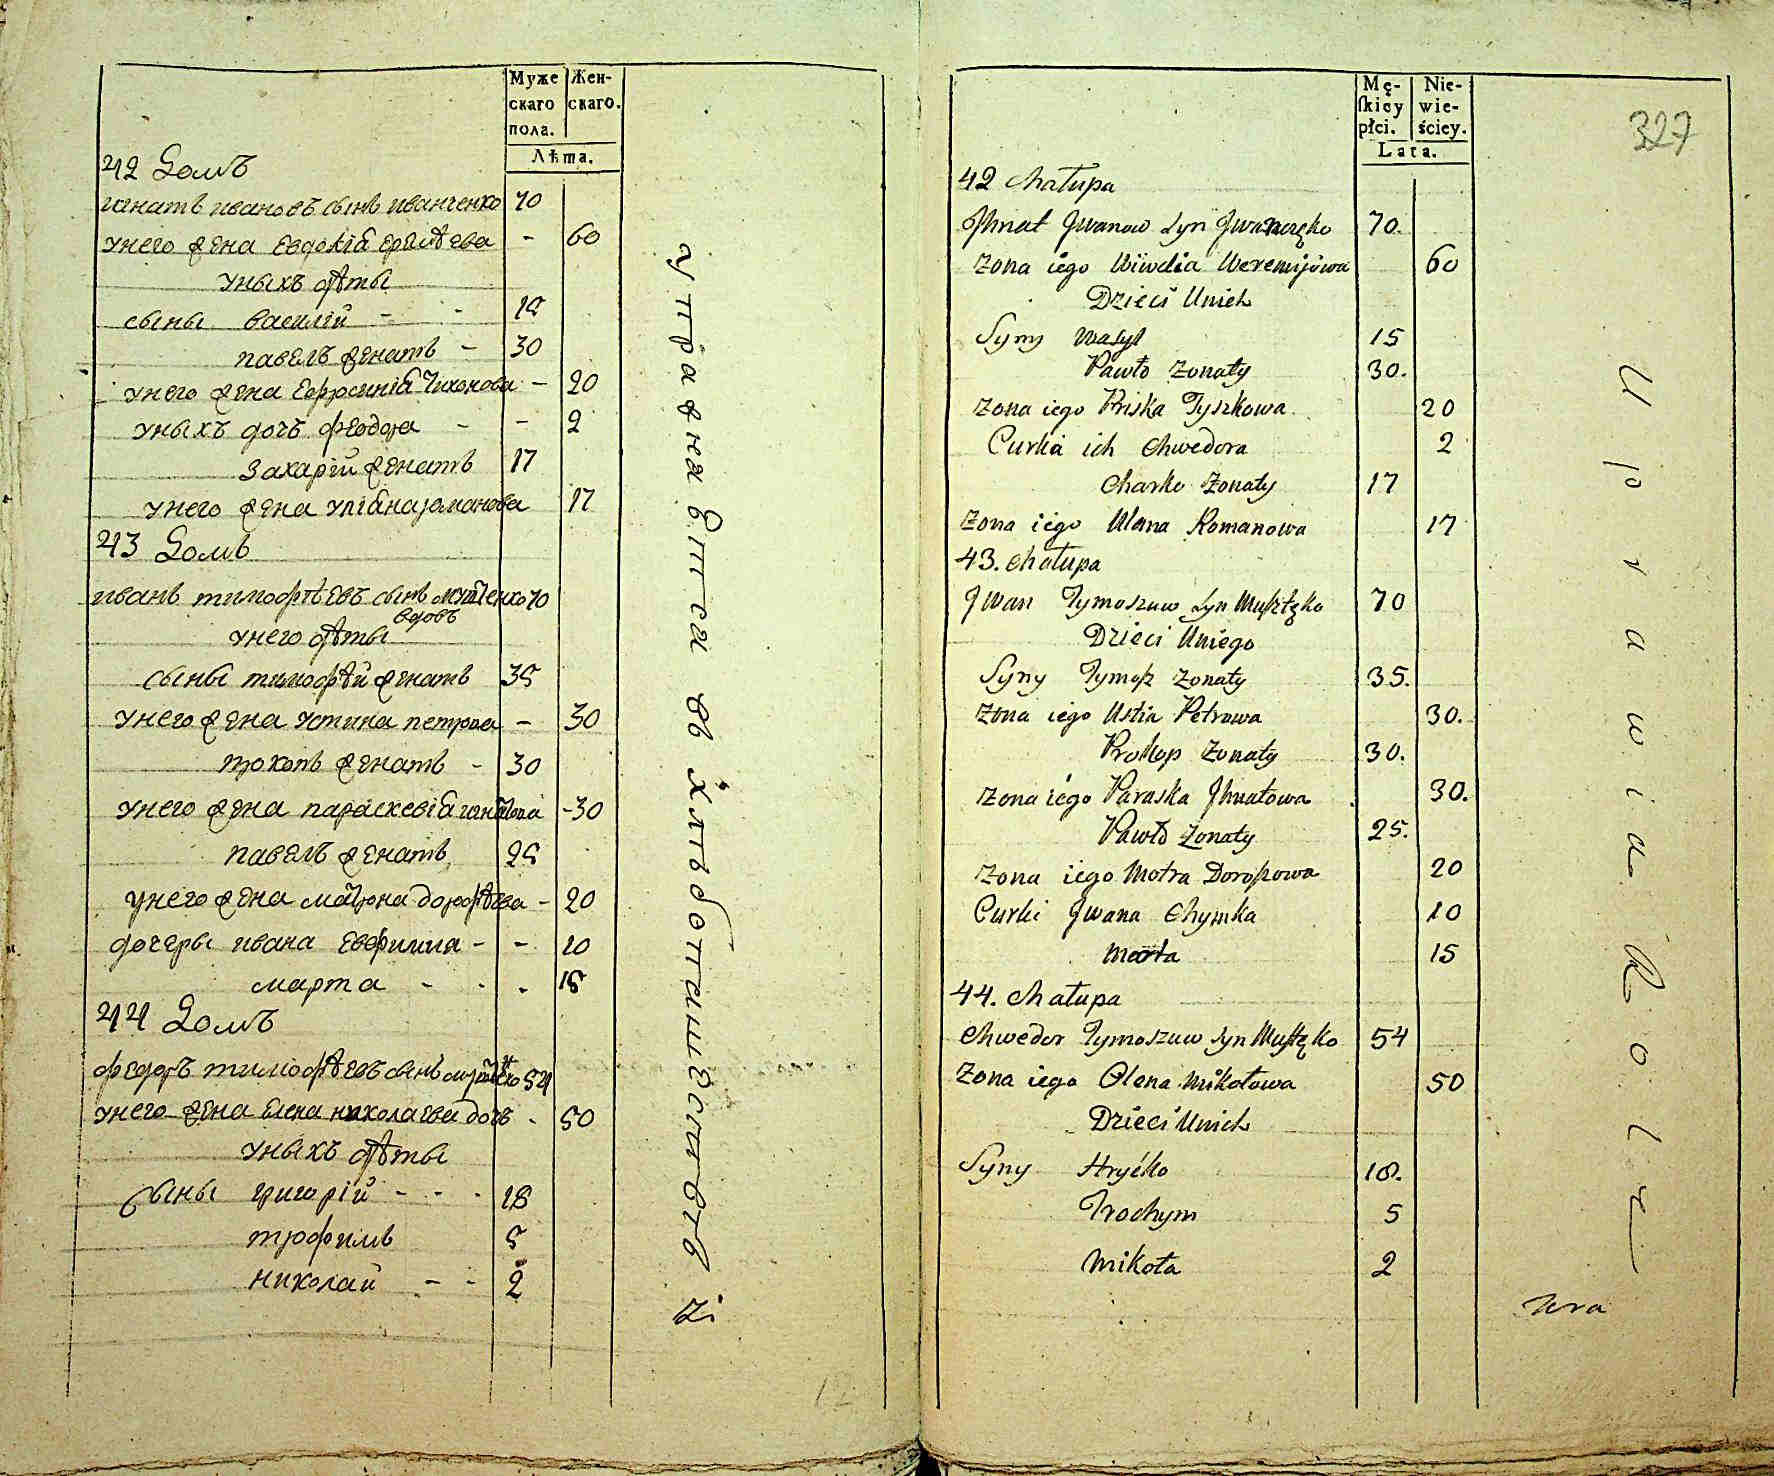 Муже
скаго
пола.
Жен-
скаго.
Лѣта.
42 Домъ
игнатъ ивановъ сынъ иванченко 70
унего жена Евдокіа еремѣева - 60
уныхъ дѣты
сыны василій - - 15
павелъ женатъ - 30
унего жена Ефросиніа Тихонова - 20
уныхъ дочъ феодора - - 2
Захарій женатъ 17
унего жена уліана романова 17
43 Домъ
иванъ тимофѣевъ сынъ 70
вдовъ
унего дѣты
сыны тимофѣй женатъ 35
унего жена устина петрова - 30
прокопъ женатъ - 30
унего жена параскевіа игнатова - 30
павелъ женатъ 25
унего жена матрона дорофѣева - 20
дочеры ивана Евфимиа - - 10
марта - - - 15
44 Домъ
федоръ тимофѣевъ сынъ 54
унего жена Елена николаева дочь - 50
уныхъ дѣты
сыны григорій - - - 18
трофимъ 5
николай - - 2
упражняется въ хлѣбопашествѣ
12
Mę-
skiey
płci.
Nie-
wie-
ściey.
Lata.
327
42 Chałupa
Jhnat Jwanow Syn Jwanczęko 70.
Zona iego Wiwdia Weremijowa 60
Dzieci Unich
Syny Wasyl 15
Pawło Zonaty 30.
Zona iego Priska Tyszkowa 20
Curka ich Chwedora 2
Charko Zonaty 17
Zona iego Ulana Romanowa 17
43. Chałupa
Jwan Tymoszuw Syn 70
Dzieci Uniego
Syny Tymosz Zonaty 35.
Zona iego Ustia Petrowa 30.
Prokop Zonaty 30.
Zona iego Paraska Jhnatowa 30.
Pawło Zonaty 25.
Zona iego Motra Doroszowa 20
Curki Jwana Chymka 10
Marta 15
44. Chałupa
Chwedor Tymoszuw Syn 54
Zona iego Olena Mikołowa 50
Dzieci Unich
Syny Hryćko 18.
Trochym 5
Mikoła 2
Uprawia Rolę